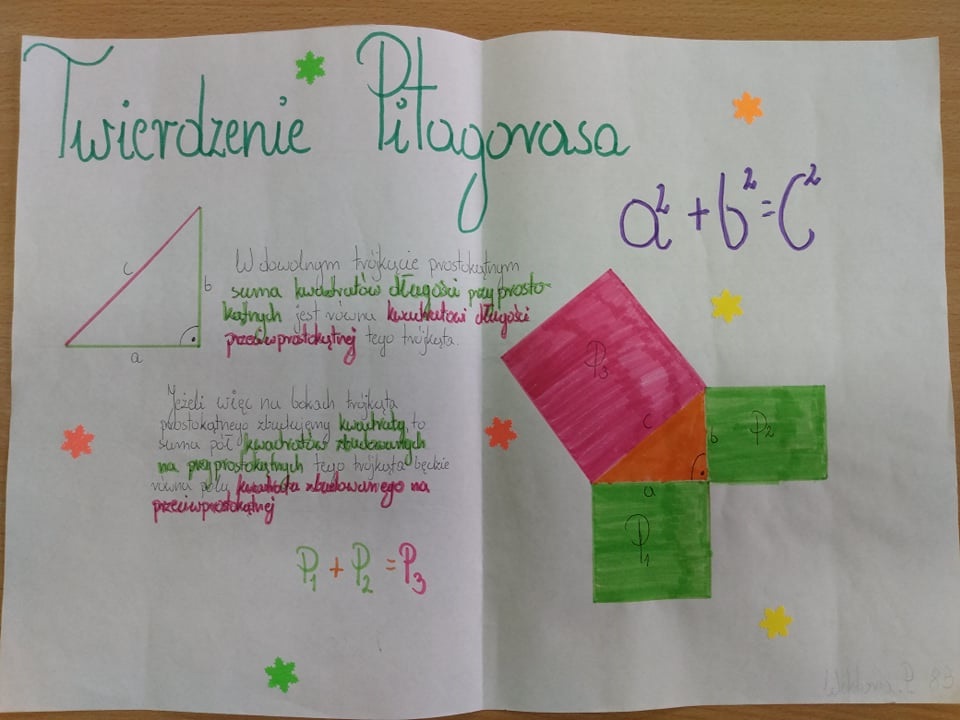 Twierdzenie Pitagorasa
a² + b² = c²
c
b
a
W dowolnym trójkącie prostokątnym
suma kwadratów długości przyprosto-
kątnych jest równa kwadratowi długości
przeciwprostokątnej tego trójkąta.
Jeżeli więc na bokach trójkąta
prostokątnego zbudujemy kwadraty, to
suma pól kwadratów zbudowanych
na przyprostokątnych tego trójkąta będzie
równa polu kwadratu zbudowanego na
przeciwprostokątnej
P₁ + P₂ = P₃
P₃
c
b
P₂
a
P₁